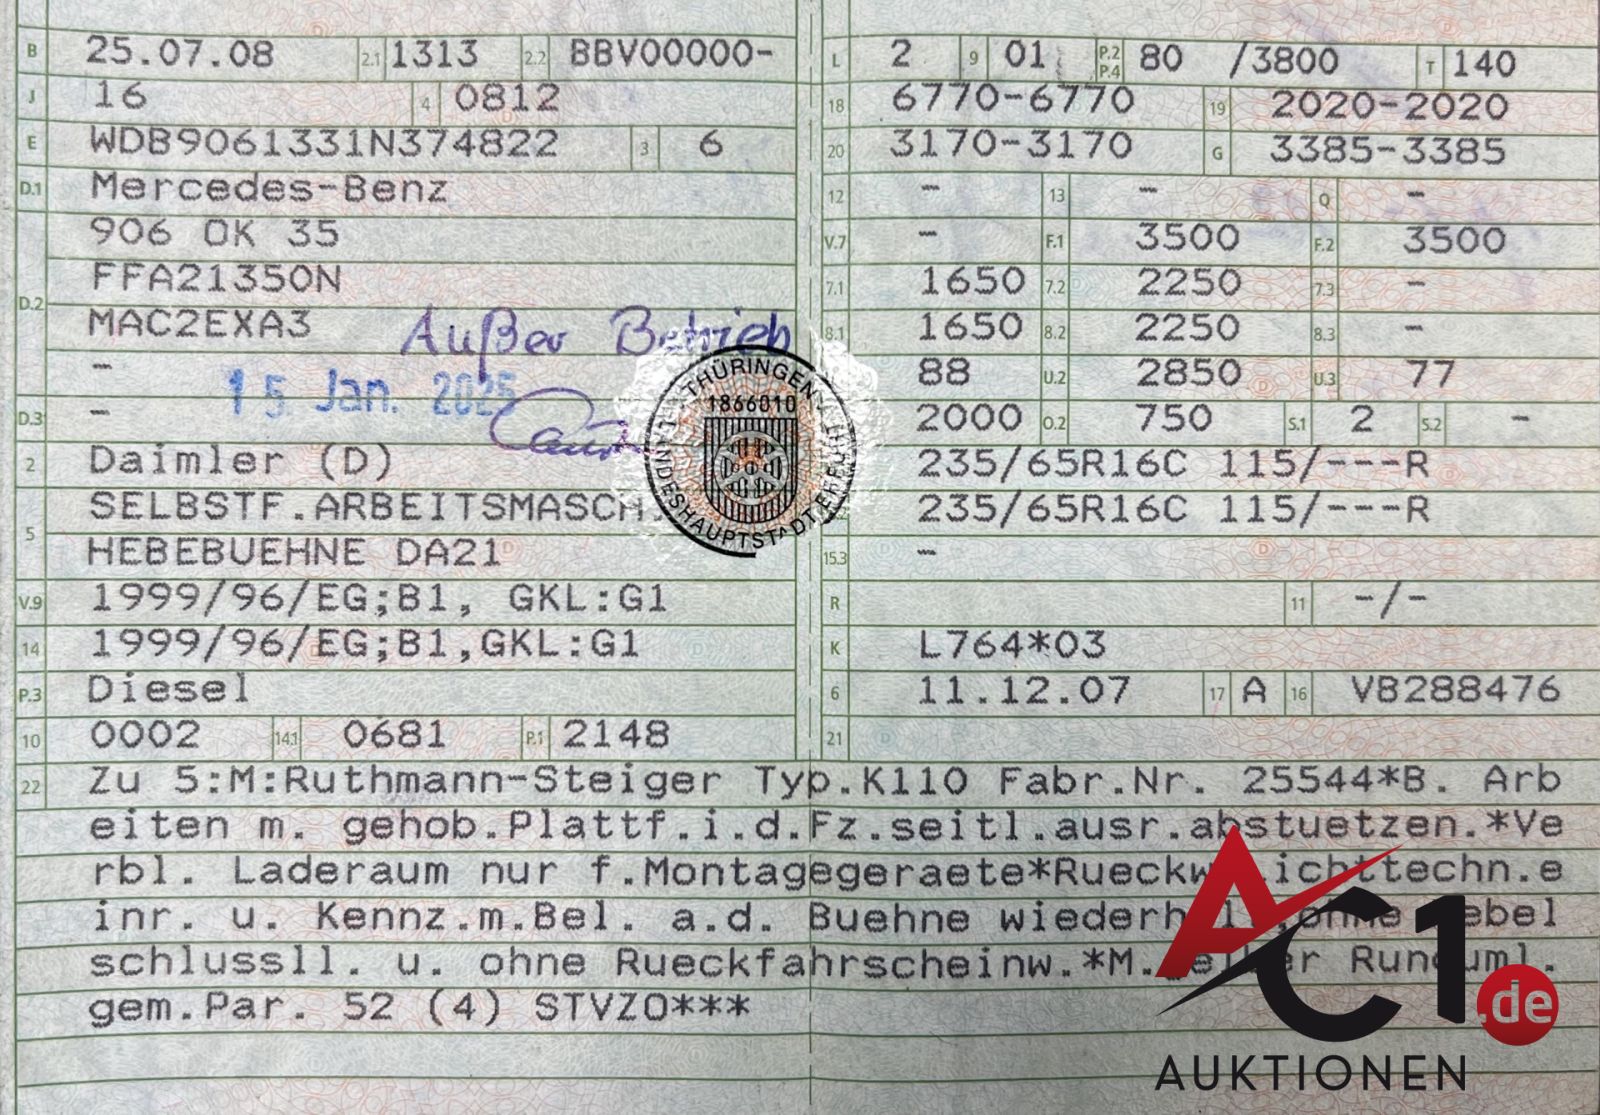 B 25.07.08 2.1 1313 2.2 BBV00000-
J 16 4 0812
E WDB9061331N374822 3 6
D.1 Mercedes-Benz
906 OK 35
FFA21350N
D.2 MAC2EXA3
Außer Betrieb
-
15 Jan. 2025
D.3 -
2 Daimler (D)
SELBSTF.ARBEITSMASCH.
5 HEBEBUEHNE DA21
V.9 1999/96/EG;B1, GKL:G1
14 1999/96/EG;B1,GKL:G1
P.3 Diesel
10 0002 14.1 0681 P.1 2148
THÜRINGEN
1866010
LANDESHAUPTSTADT ERFURT
L 2 9 01 P.2 P.4 80 /3800 T 140
18 6770-6770 19 2020-2020
20 3170-3170 G 3385-3385
12 - 13 - Q -
V.7 - F.1 3500 F.2 3500
7.1 1650 7.2 2250 7.3 -
8.1 1650 8.2 2250 8.3 -
88 U.2 2850 U.3 77
2000 O.2 750 S.1 2 S.2 -
235/65R16C 115/---R
235/65R16C 115/---R
15.3 -
R 11 -/-
K L764*03
6 11.12.07 17 A 16 VB288476
21
22 Zu 5:M:Ruthmann-Steiger Typ.K110 Fabr.Nr. 25544*B. Arb
eiten m. gehob.Plattf.i.d.Fz.seitl.ausr.abstuetzen.*Ve
rbl. Laderaum nur f.Montagegeraete*Rueckw.lichttechn.e
inr. u. Kennz.m.Bel. a.d. Buehne wiederhol,ohne Nebel
schlussll. u. ohne Rueckfahrscheinw.*M.gelber Runduml.
gem.Par. 52 (4) STVZO***
AC1.de
AUKTIONEN